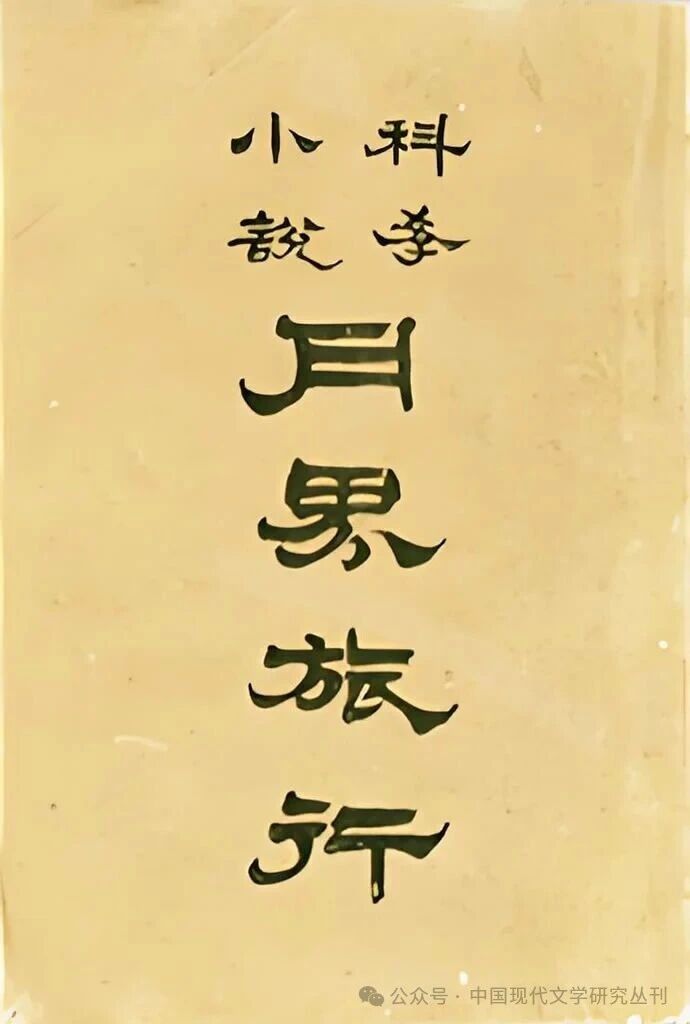 科学
小説
月界旅行
公众号·中国现代文学研究丛刊